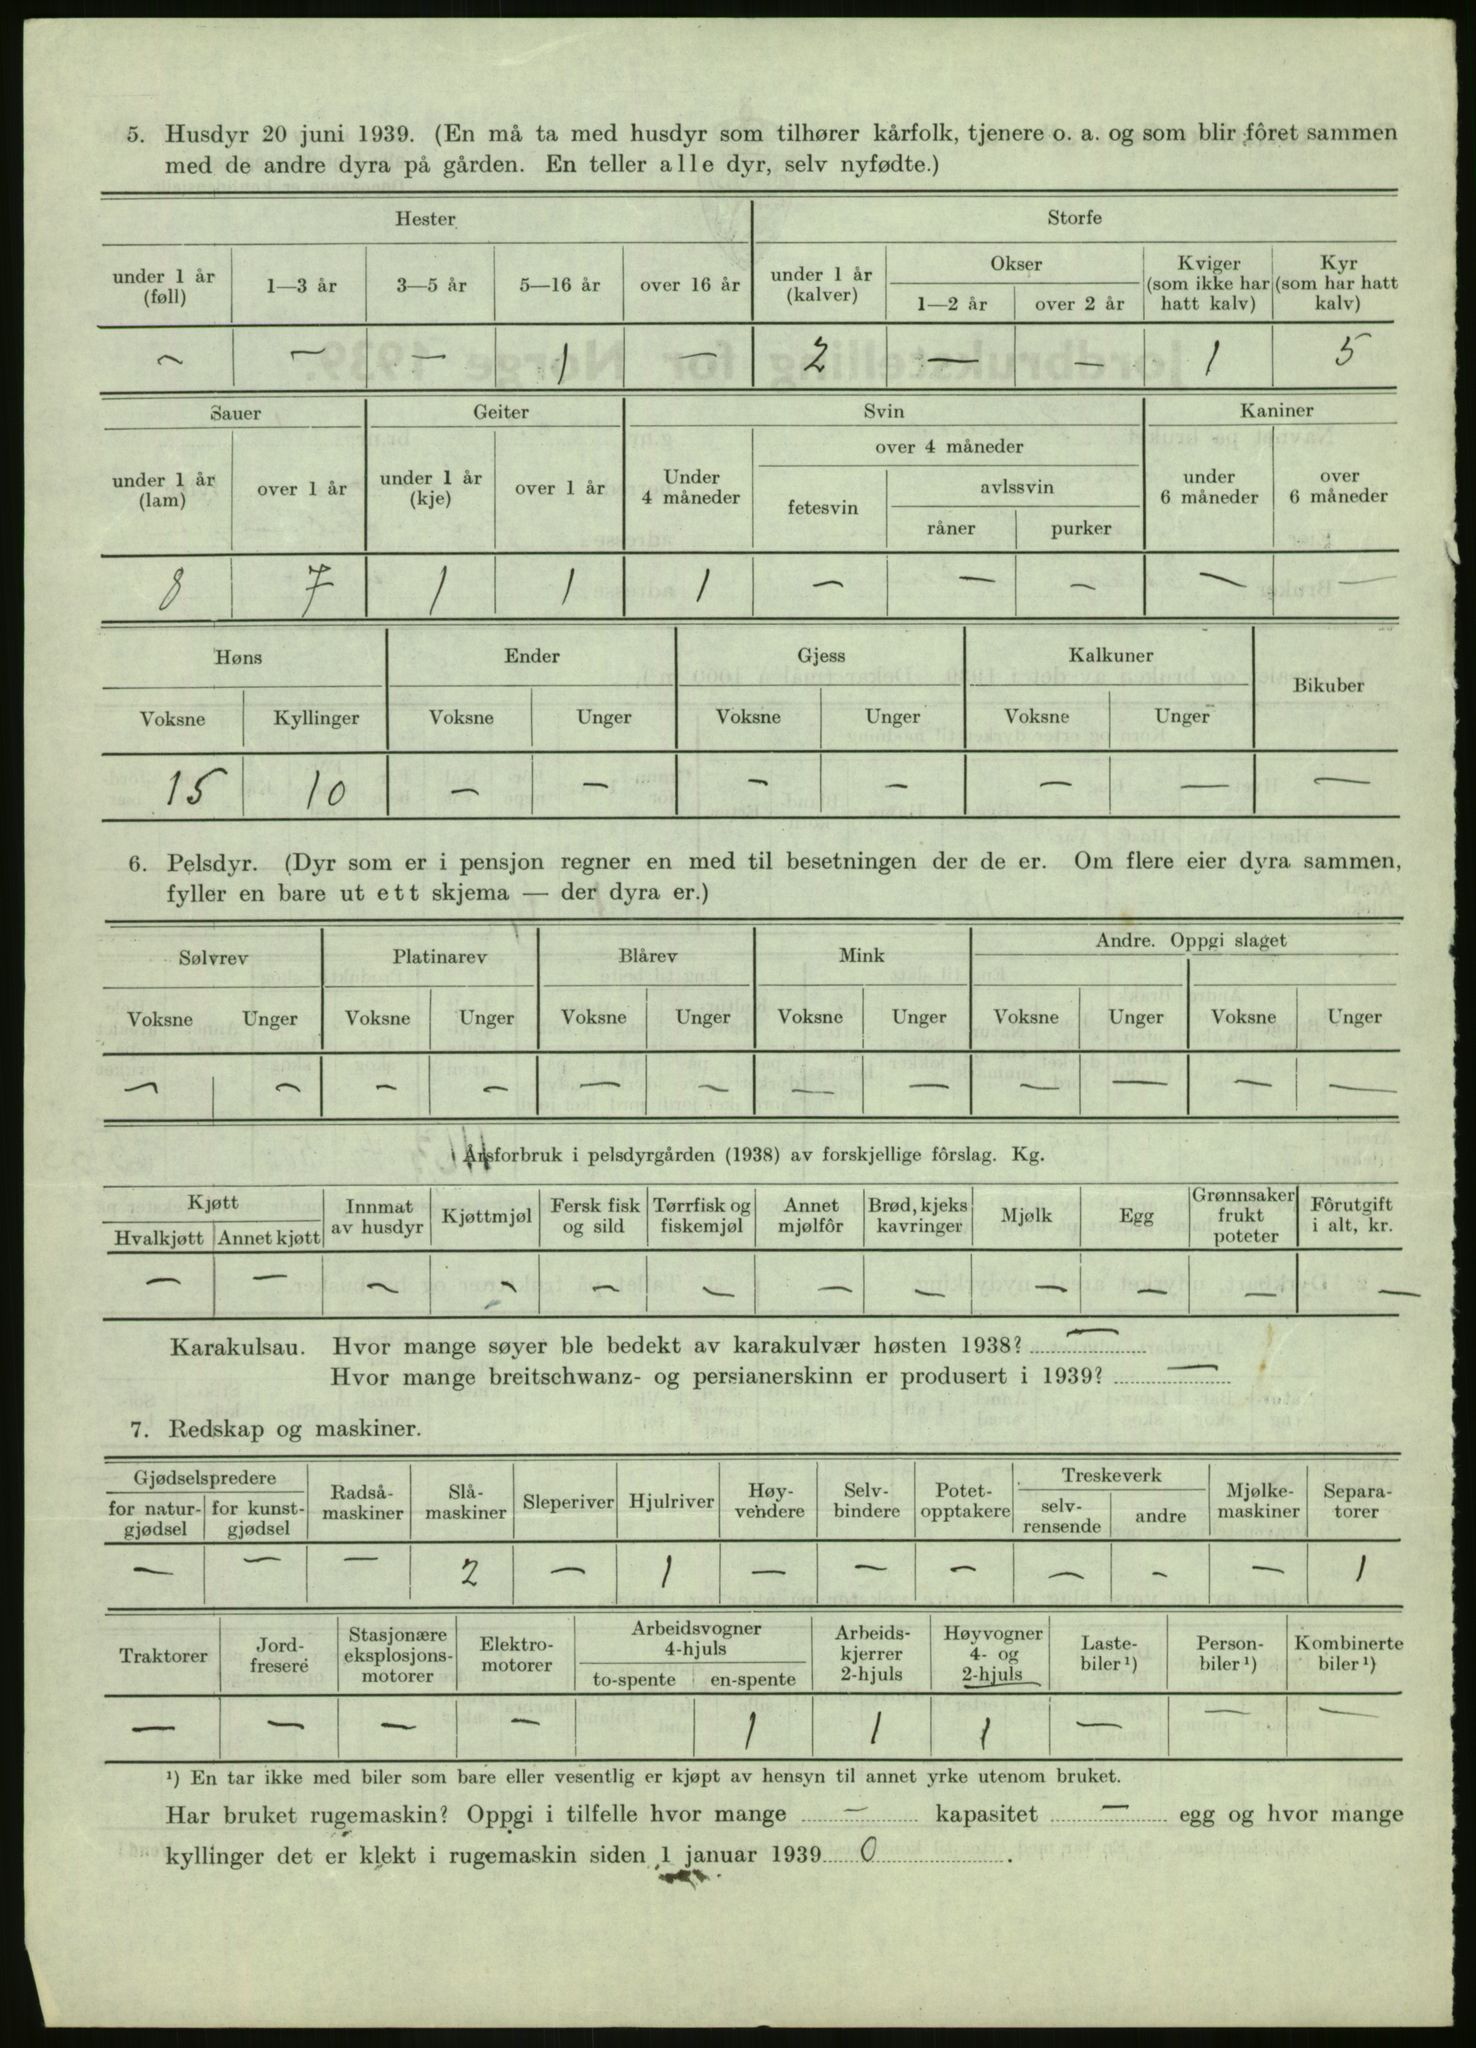 5. Husdyr 20 juni 1939. (En må ta med husdyr som tilhører kårfolk, tjenere o. a. og som blir fôret sammen
med de andre dyra på gården. En teller alle dyr, selv nyfødte.)
Hester Storfe
under 1 år (føll) 1—3 år 3—5 år 5—16 år over 16 år under 1 år (kalver) Okser 1—2 år over 2 år Kviger (som ikke har hatt kalv) Kyr (som har hatt kalv)
— — — 1 — 2 — — 1 5
Sauer Geiter Svin Kaniner
under 1 år (lam) over 1 år under 1 år (kje) over 1 år Under 4 måneder over 4 måneder fetesvin avlssvin råner purker under 6 måneder over 6 måneder
8 7 1 1 1 — — — — —
Høns Ender Gjess Kalkuner Bikuber
Voksne Kyllinger Voksne Unger Voksne Unger Voksne Unger
15 10 — — — — — — —
6. Pelsdyr. (Dyr som er i pensjon regner en med til besetningen der de er. Om flere eier dyra sammen,
fyller en bare ut ett skjema — der dyra er.)
Sølvrev Platinarev Blårev Mink Andre. Oppgi slaget
Voksne Unger Voksne Unger Voksne Unger Voksne Unger Voksne Unger Voksne Unger
— — — — — — — — — — — —
Årsforbruk i pelsdyrgården (1938) av forskjellige fôrslag. Kg.
Kjøtt Hvalkjøtt Annet kjøtt Innmat av husdyr Kjøttmjøl Fersk fisk og sild Tørrfisk og fiskemjøl Annet mjølfôr Brød, kjeks kavringer Mjølk Egg Grønnsaker frukt poteter Fôrutgift i alt, kr.
— — — — — — — — — — — —
Karakulsau. Hvor mange søyer ble bedekt av karakulvær høsten 1938? —
Hvor mange breitschwanz- og persianerskinn er produsert i 1939? —
7. Redskap og maskiner.
Gjødselspredere for naturgjødsel for kunstgjødsel Radsåmaskiner Slåmaskiner Sleperiver Hjulriver Høyvendere Selvbindere Potetopptakere Treskeverk selvrensende andre Mjølkemaskiner Separatorer
— — — 2 — 1 — — — — — — 1
Traktorer Jordfresere Stasjonære eksplosjonsmotorer Elektromotorer Arbeidsvogner 4-hjuls to-spente en-spente Arbeidskjerrer 2-hjuls Høyvogner 4- og 2-hjuls Lastebiler ¹) Personbiler ¹) Kombinerte biler ¹)
— — — — 1 1 1 — — —
¹) En tar ikke med biler som bare eller vesentlig er kjøpt av hensyn til annet yrke utenom bruket.
Har bruket rugemaskin? Oppgi i tilfelle hvor mange — kapasitet — egg og hvor mange
kyllinger det er klekt i rugemaskin siden 1 januar 1939 0 .